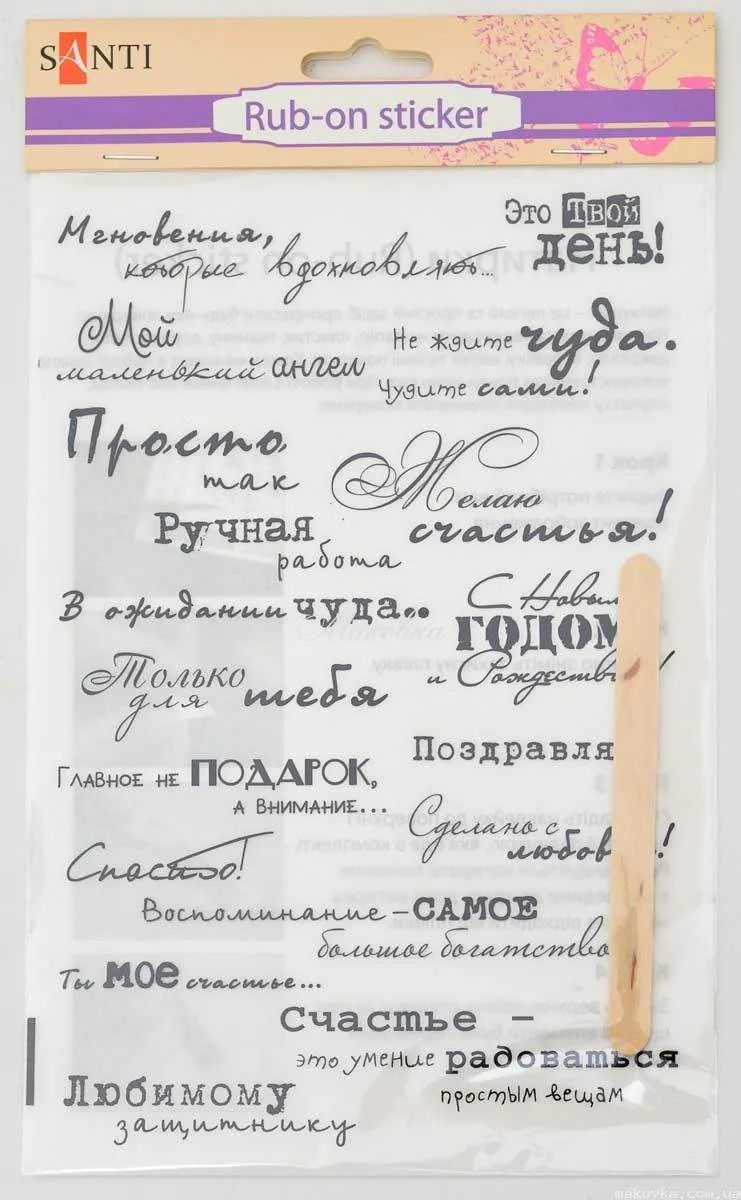 SANTI
Rub-on sticker
Это ТВОЙ
день!
Мгновения,
которые вдохновляют...
Мой
маленький ангел
Не ждите чуда.
Чудите сами!
Просто
так
Желаю
счастья!
Ручная
работа
В ожидании чуда..
С Новым
ГОДОМ
и Рождеством!
Только
для тебя
Поздравля
Главное не ПОДАРОК,
а внимание...
Сделано с
любовью!
Спасибо!
Воспоминание – САМОЕ
большое богатство
Ты мое счастье...
Счастье –
это умение радоваться
простым вещам
Любимому
защитнику
makovka.com.ua